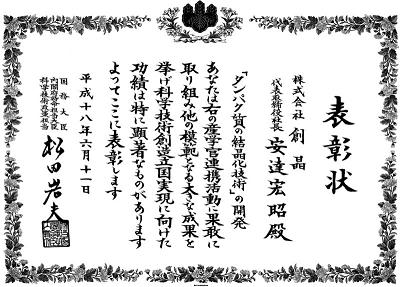 表彰状
株式会社 創晶
代表取締役社長 安達宏昭殿
「タンパク質の結晶化技術」の開発
あなたは右の産学官連携活動に果敢に
取り組み他の模範となる大きな成果を
挙げ科学技術創造立国実現に向けた
功績は特に顕著なものがあります
よってここに表彰します
平成十八年六月十一日
国務大臣
内閣府特命担当大臣
科学技術政策担当
松田岩夫